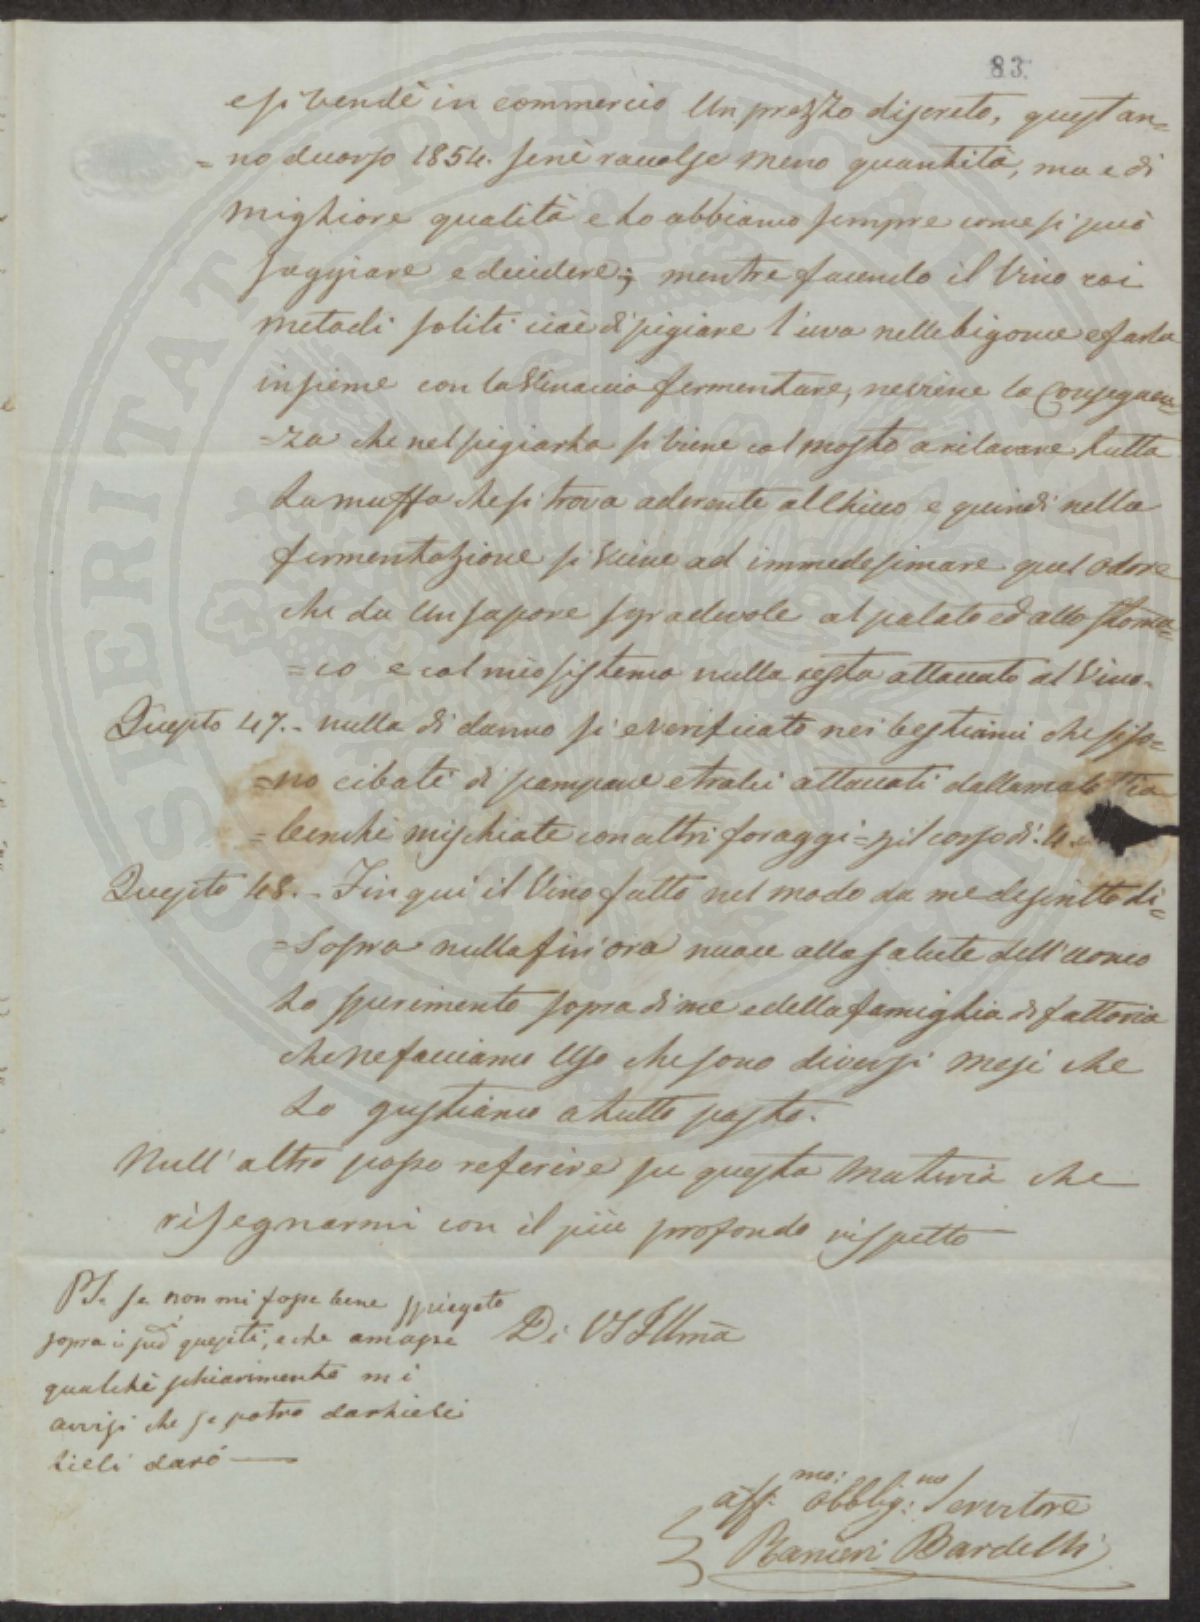 83.
e si vendè in commercio Un prezzo discreto, quest'an=
=no decorso 1854. sene racolse meno quantità, ma e di
migliore qualità e lo abbiamo sempre come si può
saggiare e decidere; mentre facendo il Vino coi
metodi soliti cioè di pigiare l'uva nelle bigonce e farla
insieme con la Vinaccia fermentare, neviene la Conseguen=
=za che nel pigiarla si viene col mosto a rilavare tutta
La muffa che si trova aderente all Chicco e quindi nella
fermentazione si Viene ad immedesimare quel Odore
che da Un sapore sgradevole al palato ed allo stoma=
=co e col mio sistema nulla resta attaccato al Vino.
Quesito 47.- nulla di danno si e verificato nei bestiami che si so=
=no cibati di pampane e tralci attaccati dalla malattia
=benchè mischiate con altri foraggi= pil corso di 4.
Quesito 48.- Fin qui il Vino fatto nel modo da me descritto di=
=Sopra nulla fin'ora nuoce alla salute dell'uomo
Lo sperimento sopra di me e della famiglia di fattoria
che ne facciamo Uso che sono diversi mesi che
Lo gustiamo a tutto pasto.
Null'altro posso referire su questa materia che
risegnarmi con il più profondo rispetto
PS. se non mi fosse bene spiegato
sopra i sud.i quesiti, e che amasse
qualchè schiarimento mi
avvisi che se potro darlieli
lieli darò
Di VS Illma
aff.mo: obblig:mo Servitore
Ranieri Bardelli